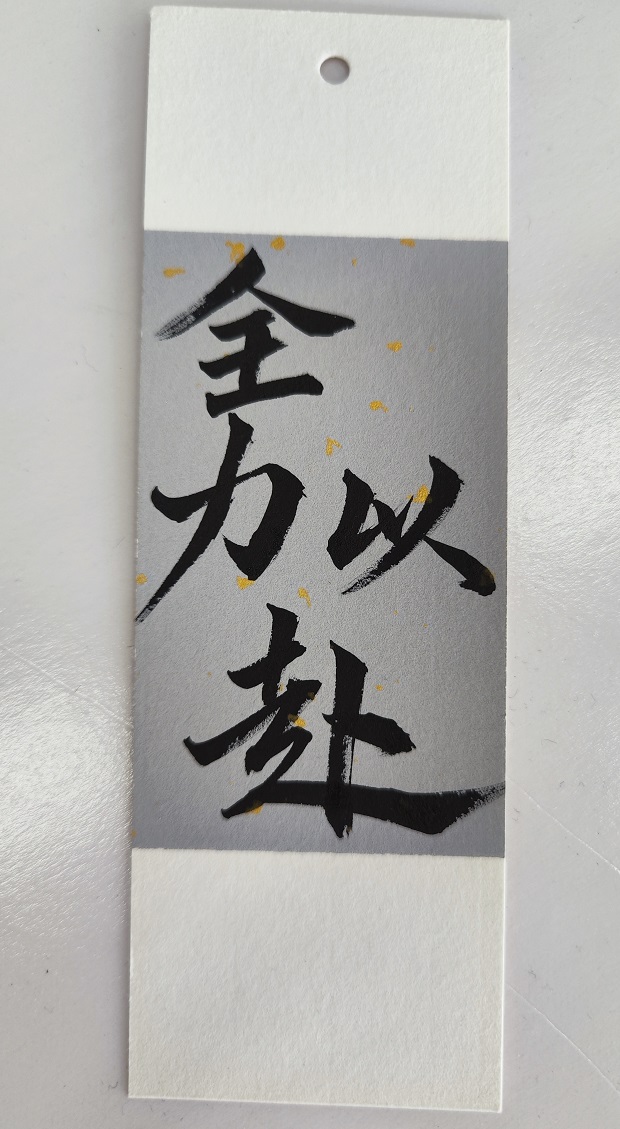 全
力以
赴